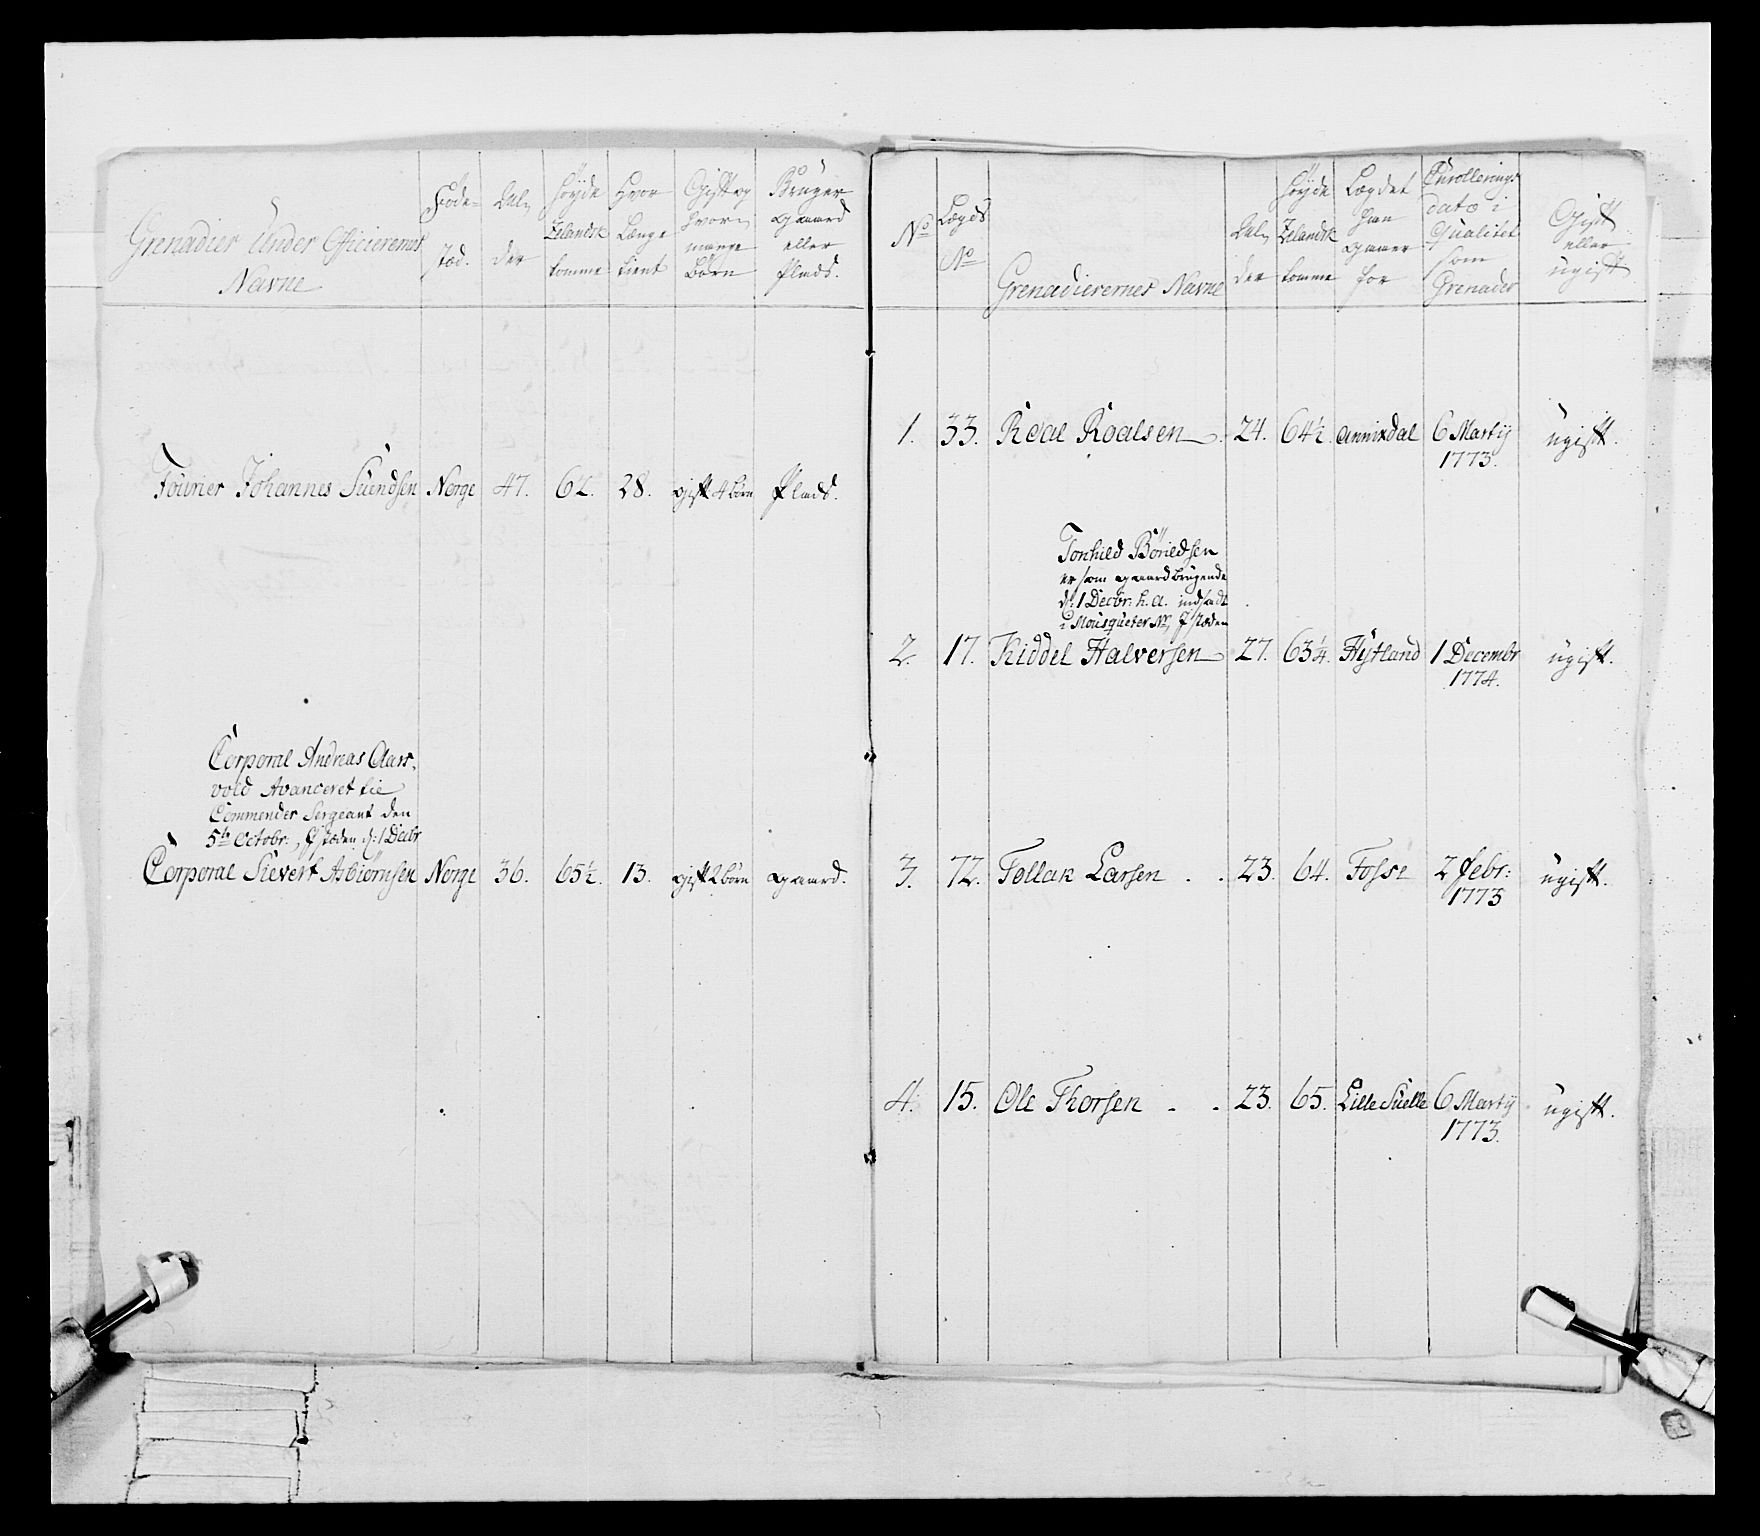 Grenadier Under Officierernes
Navne
Føde-
stæd.
Al-
der
Høyde
Zelandsk
tomme
Hvor
Længe
tient
Gift og
hvor
mange
Børn
Bruger
gaard
eller
Plads.
Fourier Johannes Suendsen Norge 47. 62. 28. gift 4 børn Plads.
Corporal Andreas Aars-
vold Avanceret til
Commender Sergeant den
5te Octobr: istæden d: 1 Decbr
Corporal Sievert Asbiørnsen Norge 36. 65½. 13. gift 2 børn gaard.
No
Lægds
No
Grenadierernes Navne
Al-
der
Høyde
Zelandsk
tomme
Lægdet
han
gaaer
for
Enrollerings
dato i
Qualitet
som
Grenader
Gift
eller
ugift
1. 33. Roal Roalsen 24. 64½. Annixdal 6 Martij ugift.
1773.
Tonhild Børildsen
er som gaardbrugende
d: 1 Decbr: h. a. indsadt
i Mousqueter No, istæden
2. 17. Kiddel Halversen 27. 63¼. Hystland 1 Decembr ugift.
1774.
3. 72. Tollak Larsen . . 23. 64. Fosse 2 febr: ugift.
1773
4. 15. Ole Thorsen . . 23. 65. Lille Suelle 6 Martij ugift.
1773.